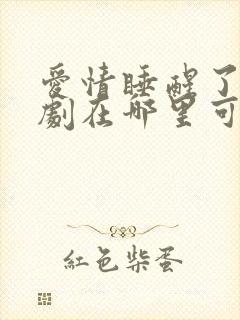 愛情睡醒了
劇在哪里可
紅色柴蛋